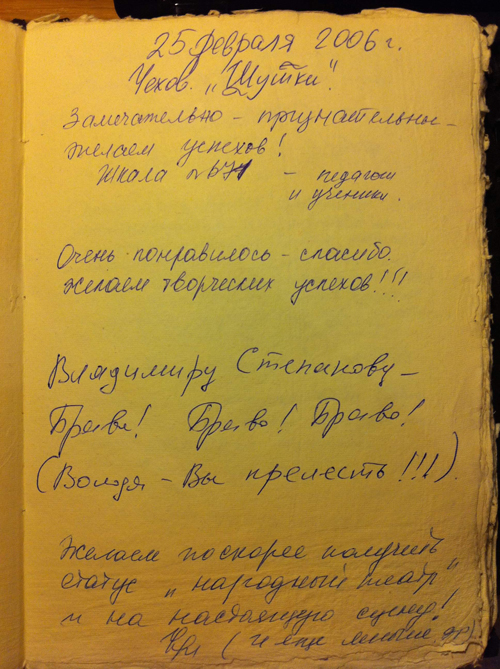 25 февраля 2006 г.
Чехов. „Шутки".
Замечательно - признательны -
желаем успехов!
Школа №671 - педагоги
и ученики.
Очень понравилось - спасибо.
Желаем творческих успехов!!!
Владимиру Степанову -
Браво! Браво! Браво!
(Володя - Вы прелесть!!!).
Желаем поскорее получить
статус „народный театр"
и на настоящую сцену!
(и еще многие др)